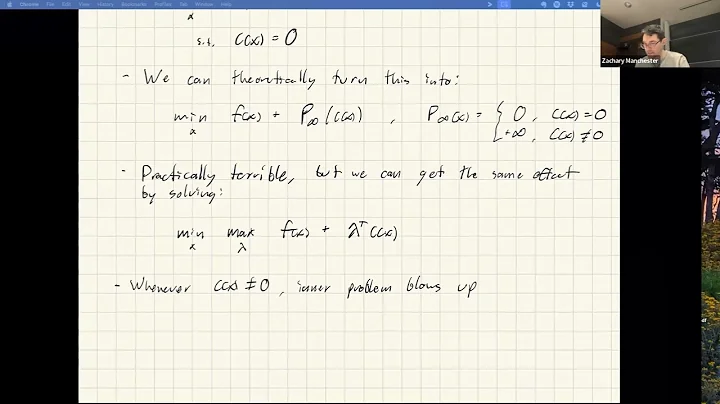 x
s.t. C(x) = 0
- We can theoretically turn this into:
min f(x) + P∞(C(x)) , P∞(x) = { 0 , C(x)=0
x
+∞ , C(x)≠0
- Practically terrible, but we can get the same effect
by solving:
min max f(x) + λᵀC(x)
x λ
- Whenever C(x) ≠ 0, inner problem blows up
Zachary Manchester